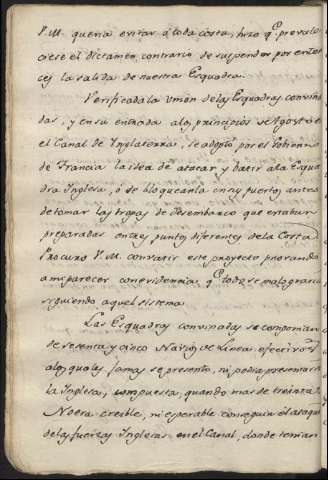 V.M. queria evitar á toda costa, hizo q.e prevale
ciese el dictamen contrario de suspender por enton
ces la salida de nuestra Esquadra.
Verificada la union de las Esquadras convina
das, y en su entrada a los principios de Agosto en
el Canal de Inglaterra, se adoptó por el Govierno
de Francia la idea de atacar y batir a la Esqua
dra Inglesa, ó de bloquearla en sus puertos antes
de tomar las tropas de desembarco que estaban
preparadas en tres puntos diferentes de la Costa
Procuró V.M. convatir este proyecto provando
a mi parecer con evidencia q.e todo se malograria
siguiendo aquel sistema.
Las Esquadras convinadas se componian
de sesenta y cinco Navios de Linea efectivos
a los quales jamas se presentó, ni podia presentarse
la Inglesa, compuesta, quando mas de treinta
No era creible, ni esperable conseguir el ataque
de las fuerzas Inglesas en el Canal, donde tenian